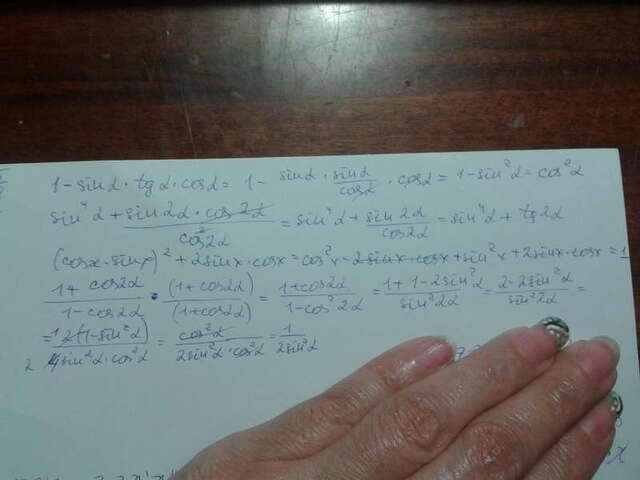 1 - sin α · tg α · cos α = 1 - sin α · sin α / cos α · cos α = 1 - sin² α = cos² α
sin⁴ α + sin 2α · cos 2α / cos² 2α = sin⁴ α + sin 2α / cos 2α = sin⁴ α + tg 2α
(cos x - sin x)² + 2 sin x · cos x = cos² x - 2 sin x · cos x + sin² x + 2 sin x · cos x = 1
1 + cos 2α / 1 - cos 2α · (1 + cos 2α) / (1 + cos 2α) = 1 + cos 2α / 1 - cos² 2α = 1 + 1 - 2 sin² α / sin² 2α = 2 - 2 sin² α / sin² 2α =
= 1 2 (1 - sin² α) / 2 4 sin² α · cos² α = cos² α / 2 sin² α · cos² α = 1 / 2 sin² α